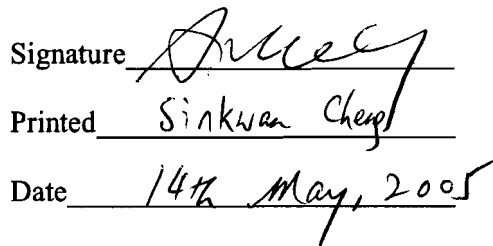 Signature
Printed Sinkwan Cheng
Date 14th May, 2005